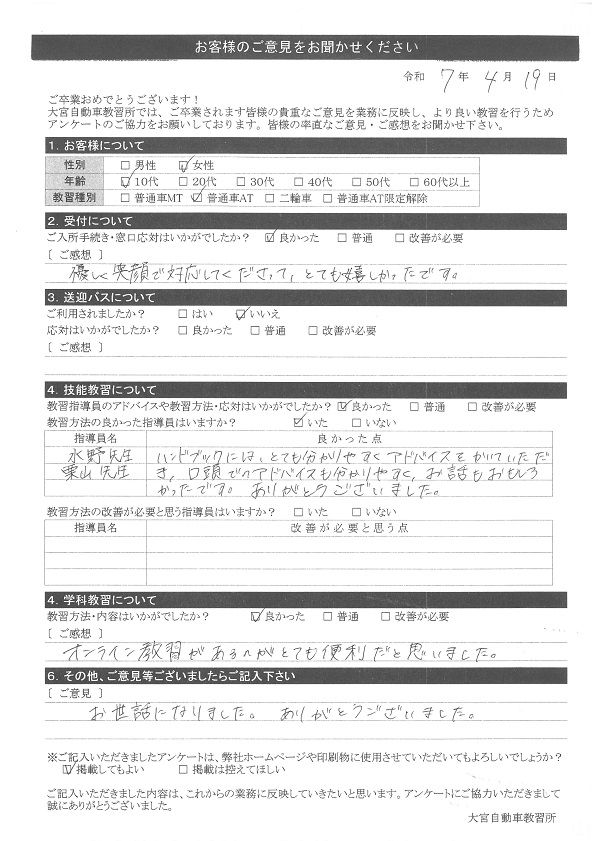 お客様のご意見をお聞かせください
令和 7年 4月 19日
ご卒業おめでとうございます!
大宮自動車教習所では、ご卒業されます皆様の貴重なご意見を業務に反映し、より良い教習を行うため
アンケートのご協力をお願いしております。皆様の率直なご意見・ご感想をお聞かせ下さい。
1. お客様について
性別 □ 男性 ☑ 女性
年齢 ☑ 10代 □ 20代 □ 30代 □ 40代 □ 50代 □ 60代以上
教習種別 □ 普通車MT ☑ 普通車AT □ 二輪車 □ 普通車AT限定解除
2. 受付について
ご入所手続き・窓口応対はいかがでしたか? ☑ 良かった □ 普通 □ 改善が必要
[ ご感想 ]
優しく笑顔で対応してくださって、とても嬉しかったです。
3. 送迎バスについて
ご利用されましたか? □ はい ☑ いいえ
応対はいかがでしたか? □ 良かった □ 普通 □ 改善が必要
[ ご感想 ]
4. 技能教習について
教習指導員のアドバイスや教習方法・応対はいかがでしたか? ☑ 良かった □ 普通 □ 改善が必要
教習方法の良かった指導員はいますか? ☑ いた □ いない
指導員名 良かった点
水野先生 ハンドブックには、とても分かりやすくアドバイスをかいていただ
栗山先生 き、口頭でのアドバイスも分かりやすく、お話もおもしろ
かったです。 ありがとうございました。
教習方法の改善が必要と思う指導員はいますか? □ いた □ いない
指導員名 改善が必要と思う点
4. 学科教習について
教習方法・内容はいかがでしたか? ☑ 良かった □ 普通 □ 改善が必要
[ ご感想 ]
オンライン教習があるのがとても便利だと思いました。
6. その他、ご意見等ございましたらご記入下さい
[ ご意見 ]
お世話になりました。 ありがとうございました。
※ご記入いただきましたアンケートは、弊社ホームページや印刷物に使用させていただいてもよろしいでしょうか?
☑ 掲載してもよい □ 掲載は控えてほしい
ご記入いただきました内容は、これからの業務に反映していきたいと思います。アンケートにご協力いただきまして
誠にありがとうございました。
大宮自動車教習所